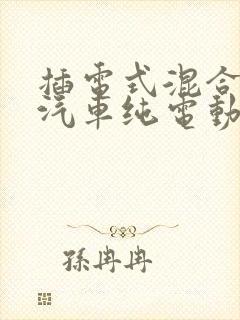 插電式混合
汽車純電動
孫冉冉